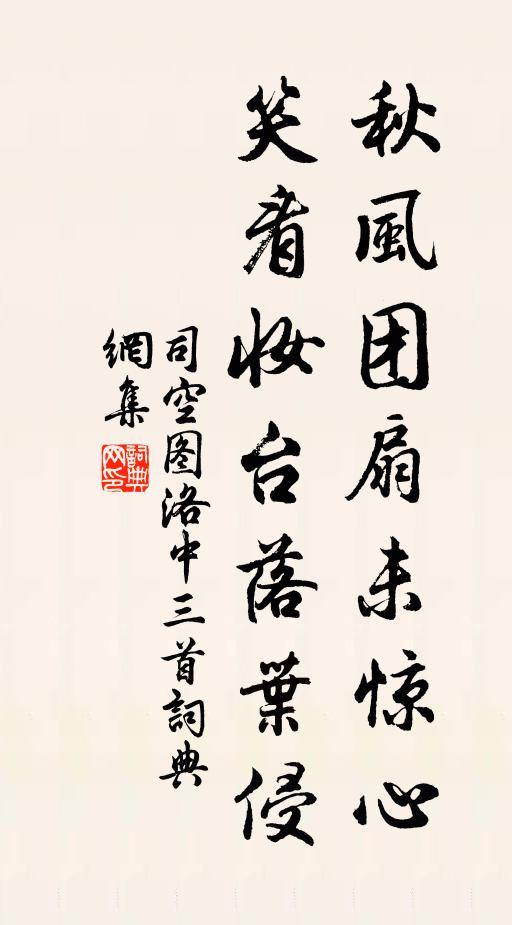 秋風团扇未惊心
笑看妆台落葉侵
司空图洛中三首詞典
網集
詞典
网印